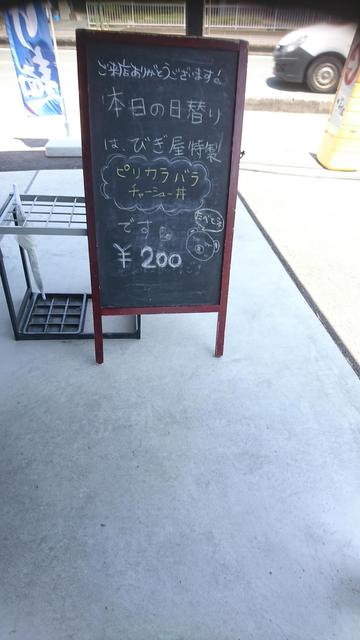 ご来店ありがとうございます！
本日の日替り
は、びぎ屋特製
ピリカラバラ
チャーシュー丼
です
たべてネ
¥200